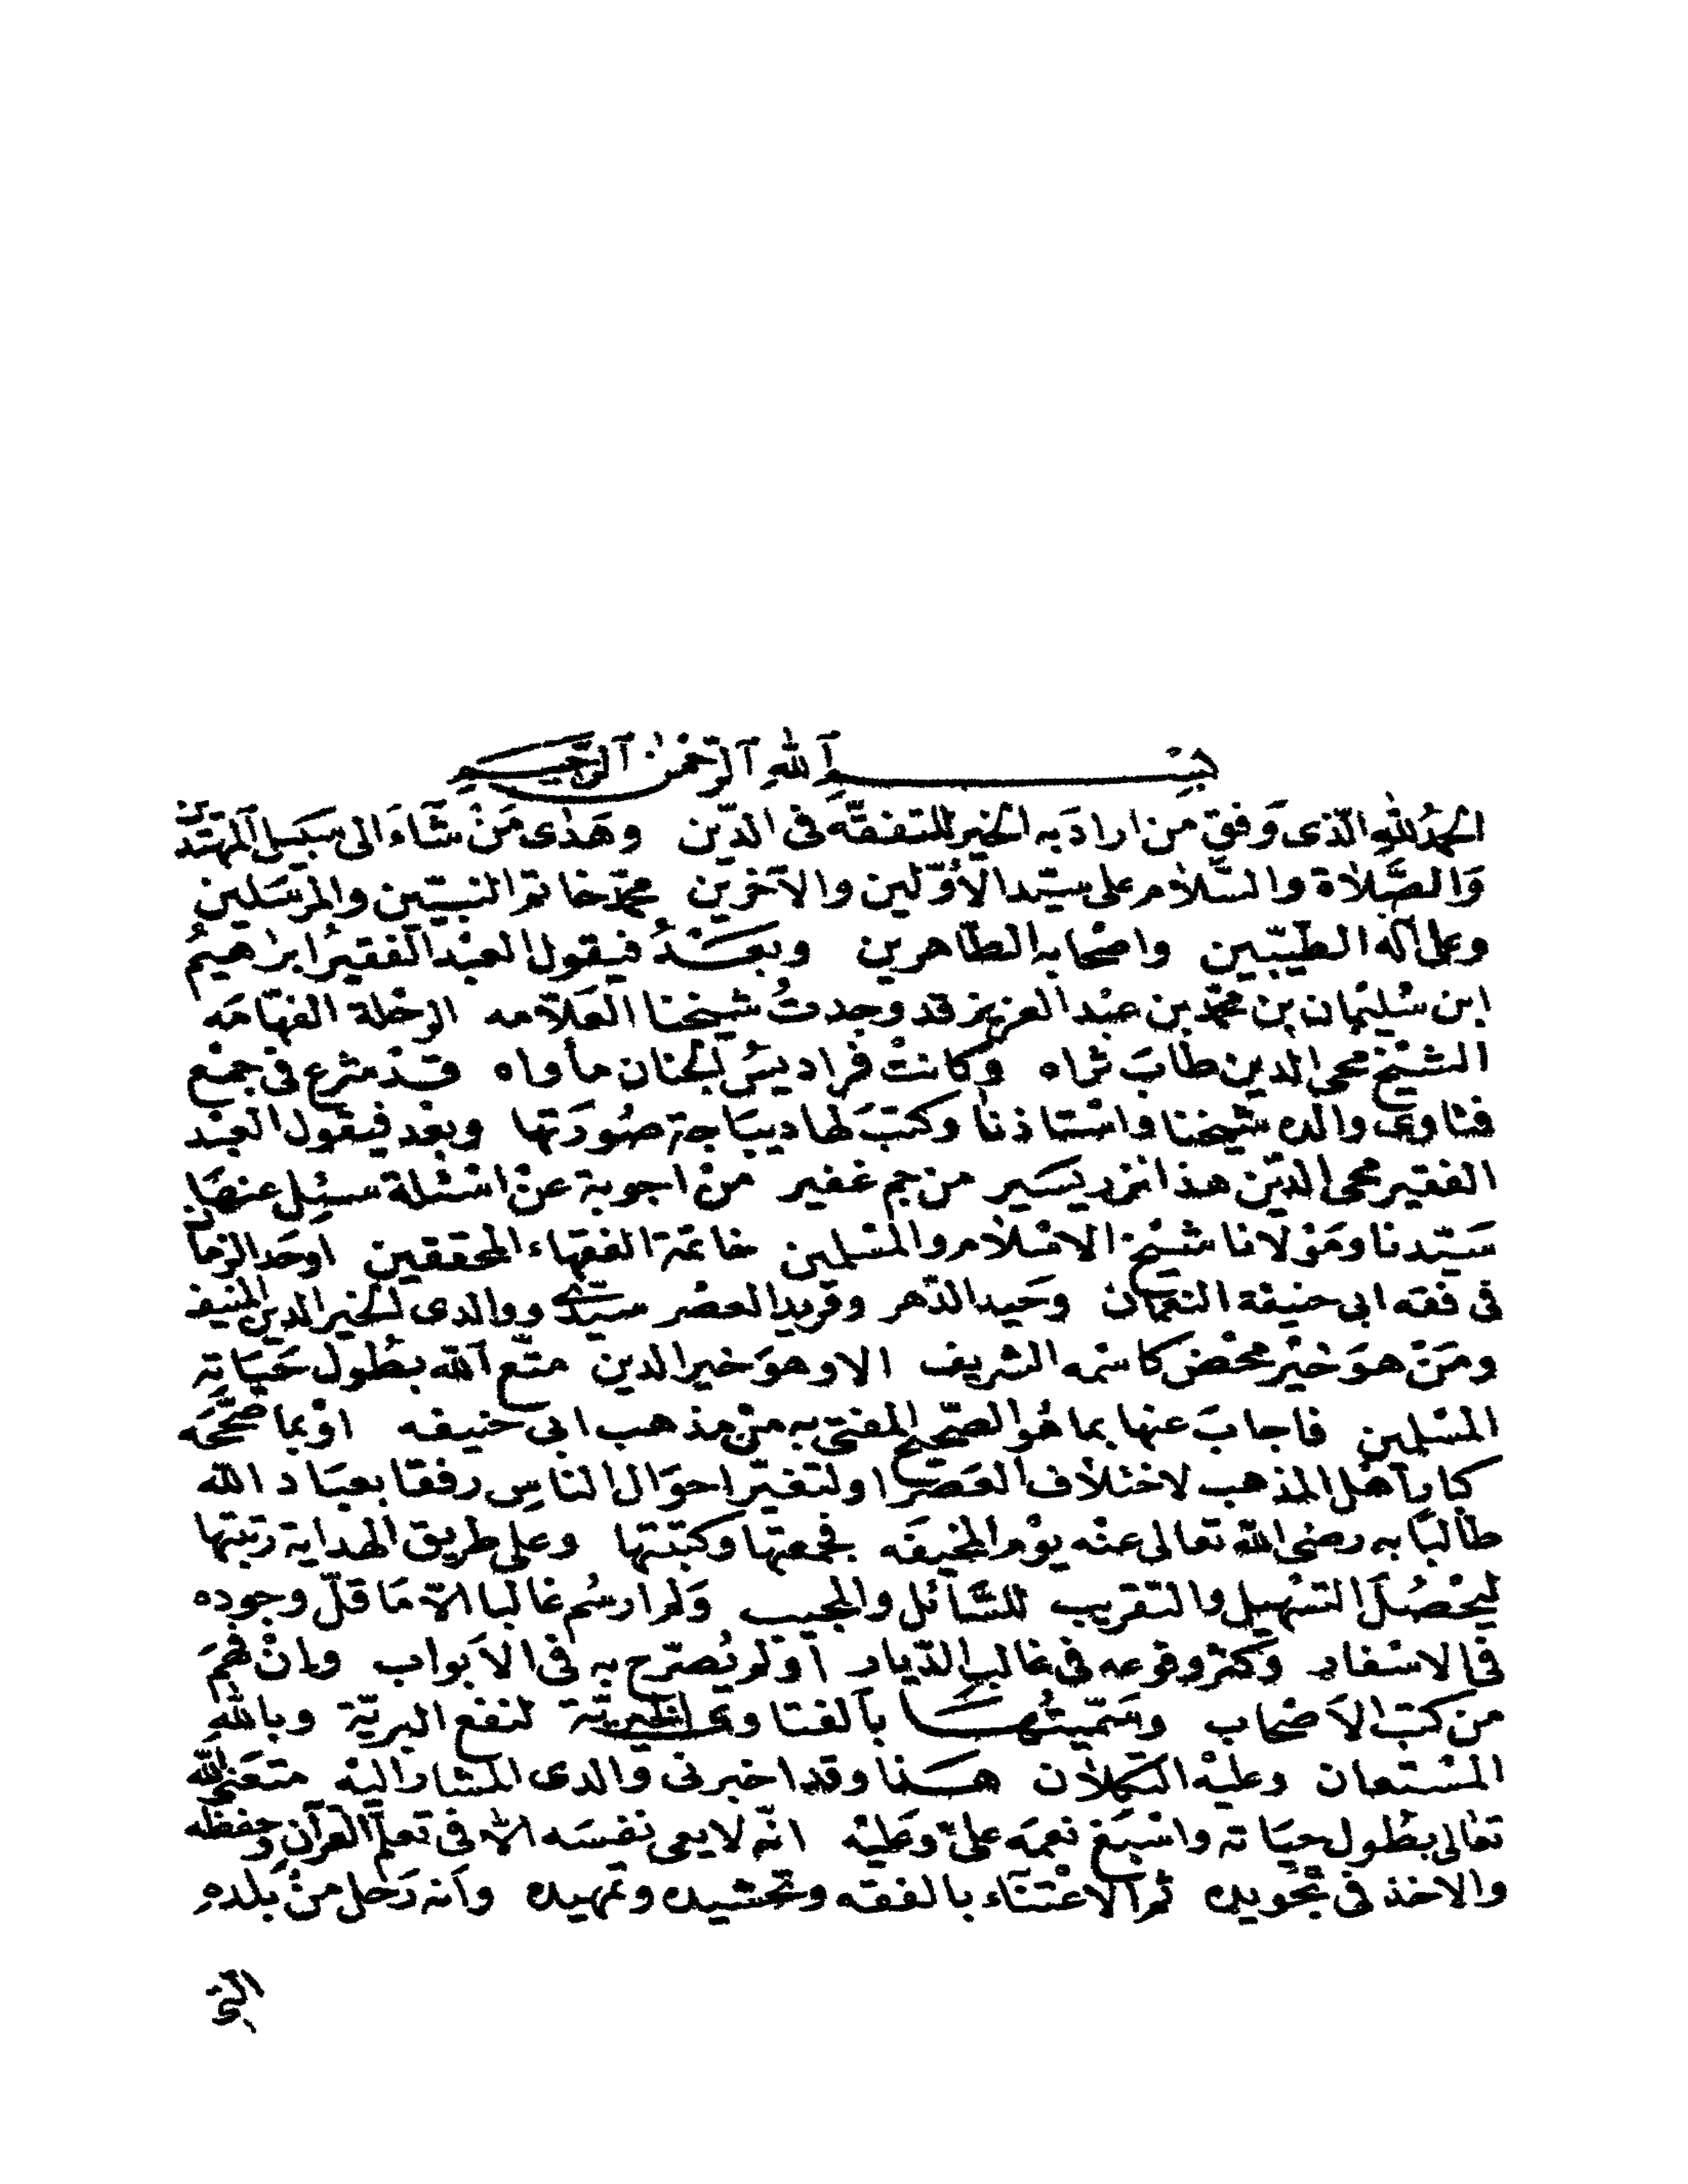 بسم الله الرحمن الرحيم
الحمد لله الذى وَفق من اراد به الخير للتفقه فى الدّين وهَدٰى مَنْ شَاءَ الى سَبيل المهتدين
وَالصَّلاة والسَّلام على سيّد الأوّلين والآخرين محمّد خاتم النبيّين والمرسَلين
وعلى آله الطيّبين واصْحابه الطّاهرين وبعَــدُ فيقول العبْد الفقيرُ ابراهيمُ
ابن سُليمان بن محمّد بن عبْد العزيز قد وجدتُ شيخنا العَلّامه الرحْلة الفهّامَه
الشيْخ محيى الدين طابَ ثراه وكانتْ فراديسُ الجنان مأواه قدْ شرع فى جمْع
فتاوى والده شيْخنا واسْتاذنا وكتبَ لها ديبَاجة صُورَتها وبعْد فيقول العبْد
الفقير محيى الدّين هذا نزر يسَير من جم غفير منْ اجوبة عنْ اسْئلة سئِل عنهَا
سَيّدنا ومَوْلانا شيْخ الاسْلام والمسْلمين خاتمة الفقهاء المحققين اوحَد الزمان
فى فقه ابى حنيفة النعمان وحَيد الدّهر وفريد العصْر سيّدى ووالدى الخير الدين المنيف
ومَنْ هوَ خيْر محْض كاسْمه الشريف الا وهوَ خير الدين متّع الله بطُول حَيَاته
المسْلمين فاجابَ عنها بما هُو الصّحيح المفتى به منْ مذهب ابى حنيفه اوْ بما صَحَّحَه
كبار أهْل المذهب لاختلاف العَصْر او لتغيّر احوَال الناسِ رفقا بعبَاد الله
طالبًا به رضى الله تعالى عنْه يوْم المخيفَه فجمعتها وكتبْتها وعلى طريق الهداية رتبتها
ليحْصُلَ التسْهيل والتقريب للسَّائل والمجيب وَلم ارسُم غالبا الاّ مَا قلّ وجوده
فى الاسْفار وَكثر وقوعه فى غالب الدّيار أوْ لم يُصَرّح به فى الأبواب وانْ فهمَ
من كتب الأصْحاب وسَمّيتُهــا بالفتاوى الخيريّة لنفع البريّة وبالله
المسْتعان وعليْه التكلان هــذا وقد اخبرنى والدى المشار اليْه متعَنى الله
تعَالى بطُول حيَاته واسْبغ نعمَه علىّ وعَليْه انّه لا يعى نفسَه الا فى تعلم القرآن وَحفظه
والاخذ فى تجْويده ثم الاعْتنَاء بالفقه وتحشيده وتمهيده وأنه رَحل منْ بلده